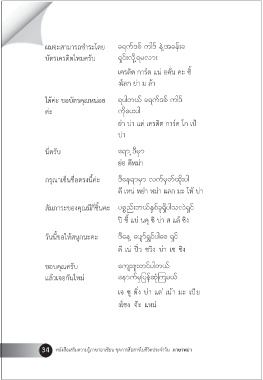 ผมจะสามารถชำระโดย ခရက်ဒစ် ကဒ် နဲ့ အခန်းခ
บัตรเครดิตไหมครับ ရှင်းလို့ရမလား
เครดิต การ์ด แน่ อคัน คะ ชี้
โล้ ยา ม ล้า
ได้คะ ขอบัตรคุณหน่อย ရပါတယ် ခရက်ဒစ် ကဒ်
คะ ကိုပေးပါ
ยา บ่า แด่ เครดิต การ์ด โก เป้
บ่า
นี่ครับ ရော့ ဒီမှာ
ย่อ ดีหม่า
กรุณาเซ็นชื่อตรงนี้คะ ဒီနေရာမှာ လက်မှတ်ထိုးပါ
ดี เหน่ หย่า หม่า แลก มะ โท้ บ่า
สัมภาระของคุณมีกี่ชิ้นคะ
วันนี้ขอให้สนุกนะคะ ဒီနေ့ ပျော်ရွှင်ပါစေ ရှင်
ดี เน่ ปี่ว ชวิง บ่า เซ ชิง
ขอบคุณครับ ကျေးဇူးတင်ပါတယ်
แล้วเจอกันใหม่ နောက်မှပြန်ဆုံကြမယ်
เจ ซู ติ่ง บ่า แด่ เน้า มะ เปี่ย
โซง จ๊ะ แหม่
34 หนังสือเสริมความรู้ภาษาอาเซียน ชุดการสื่อสารในชีวิตประจำวัน ภาษาพม่า